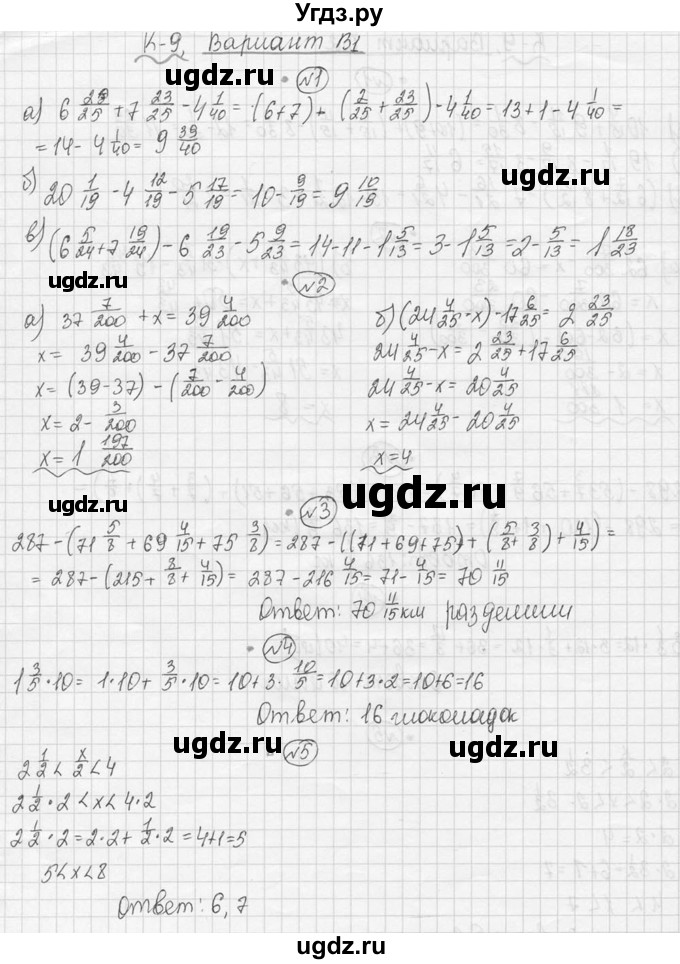 Угдз.ру
К-9, Вариант В1
№1
а) 6 2/25 + 7 23/25 - 4 1/40 = (6+7) + (2/25 + 23/25) - 4 1/40 = 13 + 1 - 4 1/40 =
= 14 - 4 1/40 = 9 39/40
б) 20 1/19 - 4 12/19 - 5 17/19 = 10 - 9/19 = 9 10/19
в) (6 5/24 + 7 19/24) - 6 19/23 - 5 9/23 = 14 - 11 - 1 5/13 = 3 - 1 5/13 = 2 - 5/13 = 1 18/23
ugdz.ru ugdz.ru ugdz.ru
№2
а) 37 7/200 + x = 39 4/200
x = 39 4/200 - 37 7/200
x = (39-37) - (7/200 - 4/200)
x = 2 - 3/200
x = 1 197/200
б) (24 4/25 - x) - 17 6/25 = 2 23/25
24 4/25 - x = 2 23/25 + 17 6/25
24 4/25 - x = 20 4/25
x = 24 4/25 - 20 4/25
x = 4
ugdz.ru
ugdz.ru ugdz.ru
№3
287 - (71 5/8 + 69 4/15 + 75 3/8) = 287 - ((71+69+75) + (5/8 + 3/8) + 4/15) =
= 287 - (215 + 8/8 + 4/15) = 287 - 216 4/15 = 71 - 4/15 = 70 11/15
Ответ: 70 11/15 км
ugdz.ru
№4
1 3/5 · 10 = 1·10 + 3/5 · 10 = 10 + 3 · 10/5 = 10 + 3·2 = 10+6 = 16
Ответ: 16 шоколадок
ugdz.ru ugdz.ru
№5
2 1/2 < x/2 < 4
2 1/2 · 2 < x < 4·2
2 1/2 · 2 = 2·2 + 1/2 · 2 = 4+1 = 5
5 < x < 8
Ответ: 6, 7
ugdz.ru
ugdz.ru